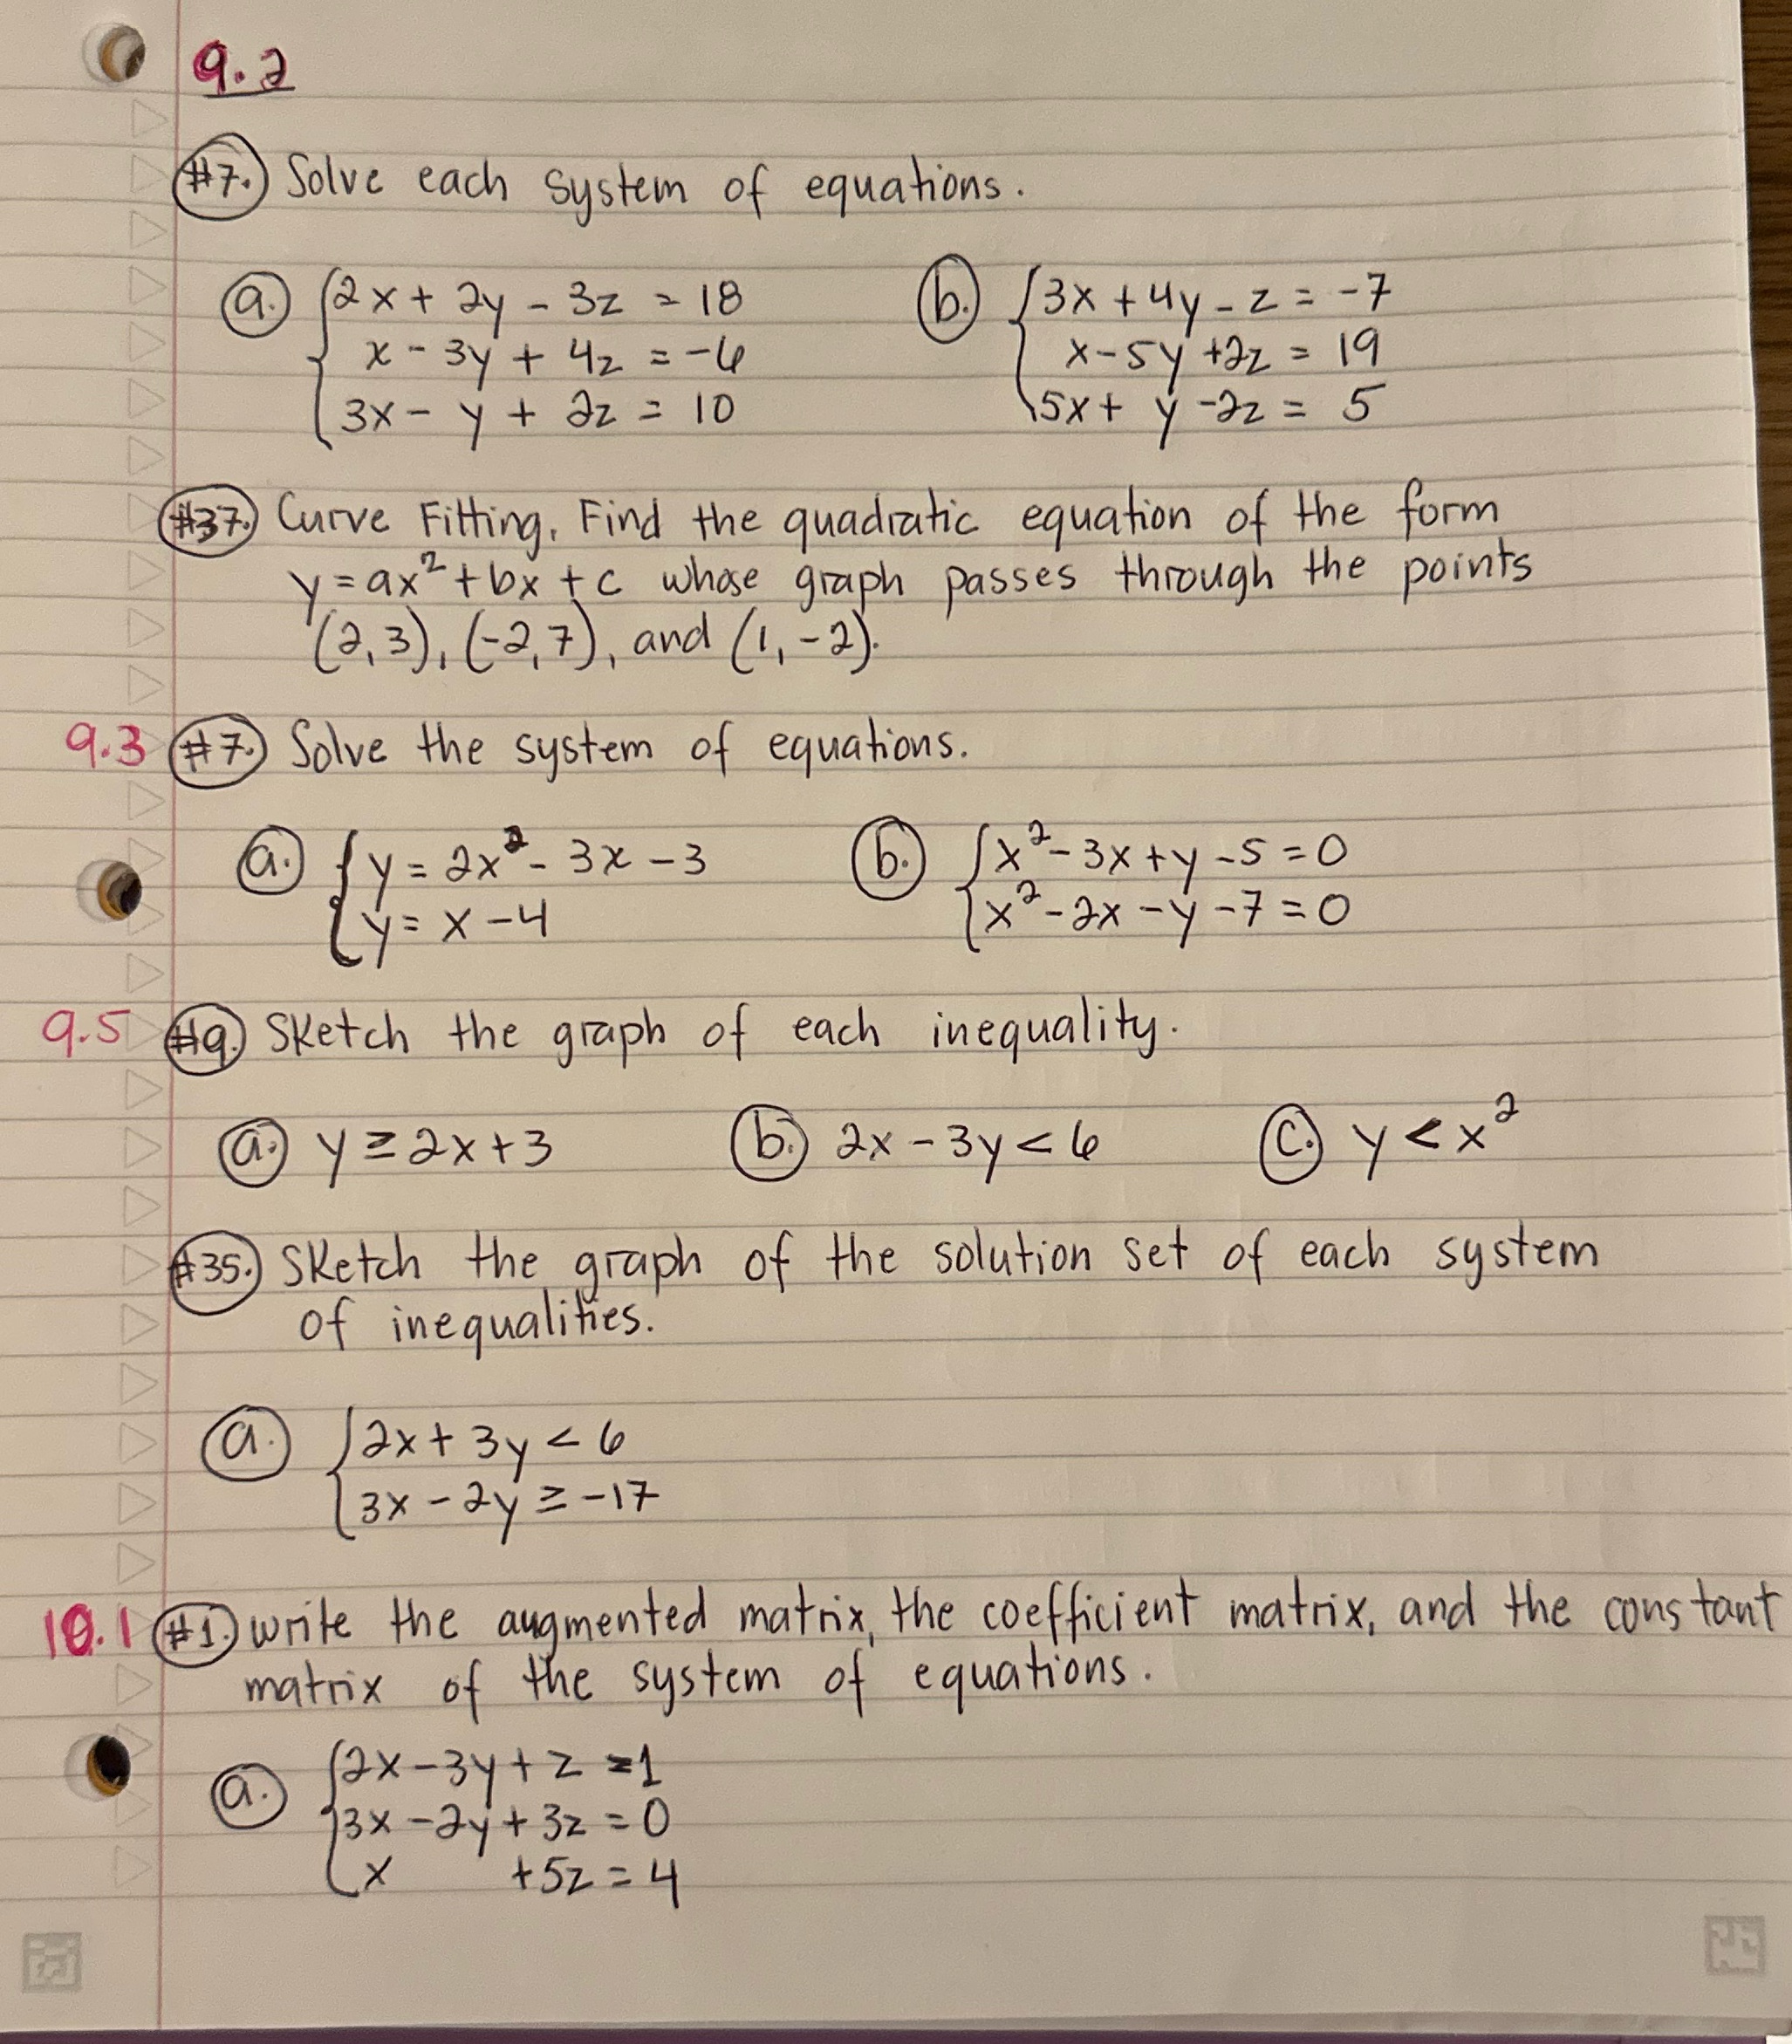 9.2
#7. Solve each system of equations.
a. 2x + 2y - 3z = 18
x - 3y + 4z = -6
3x - y + 2z = 10
b. 3x + 4y - z = -7
x - 5y + 2z = 19
5x + y - 2z = 5
#37. Curve Fitting. Find the quadratic equation of the form
y = ax² + bx + c whose graph passes through the points
(2,3), (-2,7), and (1,-2).
9.3 #7. Solve the system of equations.
a. y = 2x² - 3x - 3
y = x - 4
b. x² - 3x + y - 5 = 0
x² - 2x - y - 7 = 0
9.5 #9. Sketch the graph of each inequality.
a. y ≥ 2x + 3 b. 2x - 3y < 6 c. y < x²
#35. Sketch the graph of the solution set of each system
of inequalities.
a. 2x + 3y < 6
3x - 2y ≥ -17
10.1 #1. Write the augmented matrix, the coefficient matrix, and the constant
matrix of the system of equations.
a. 2x - 3y + z = 1
3x - 2y + 3z = 0
x + 5z = 4